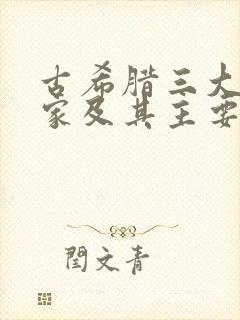 古希腊三大
家及其主要
闫文青